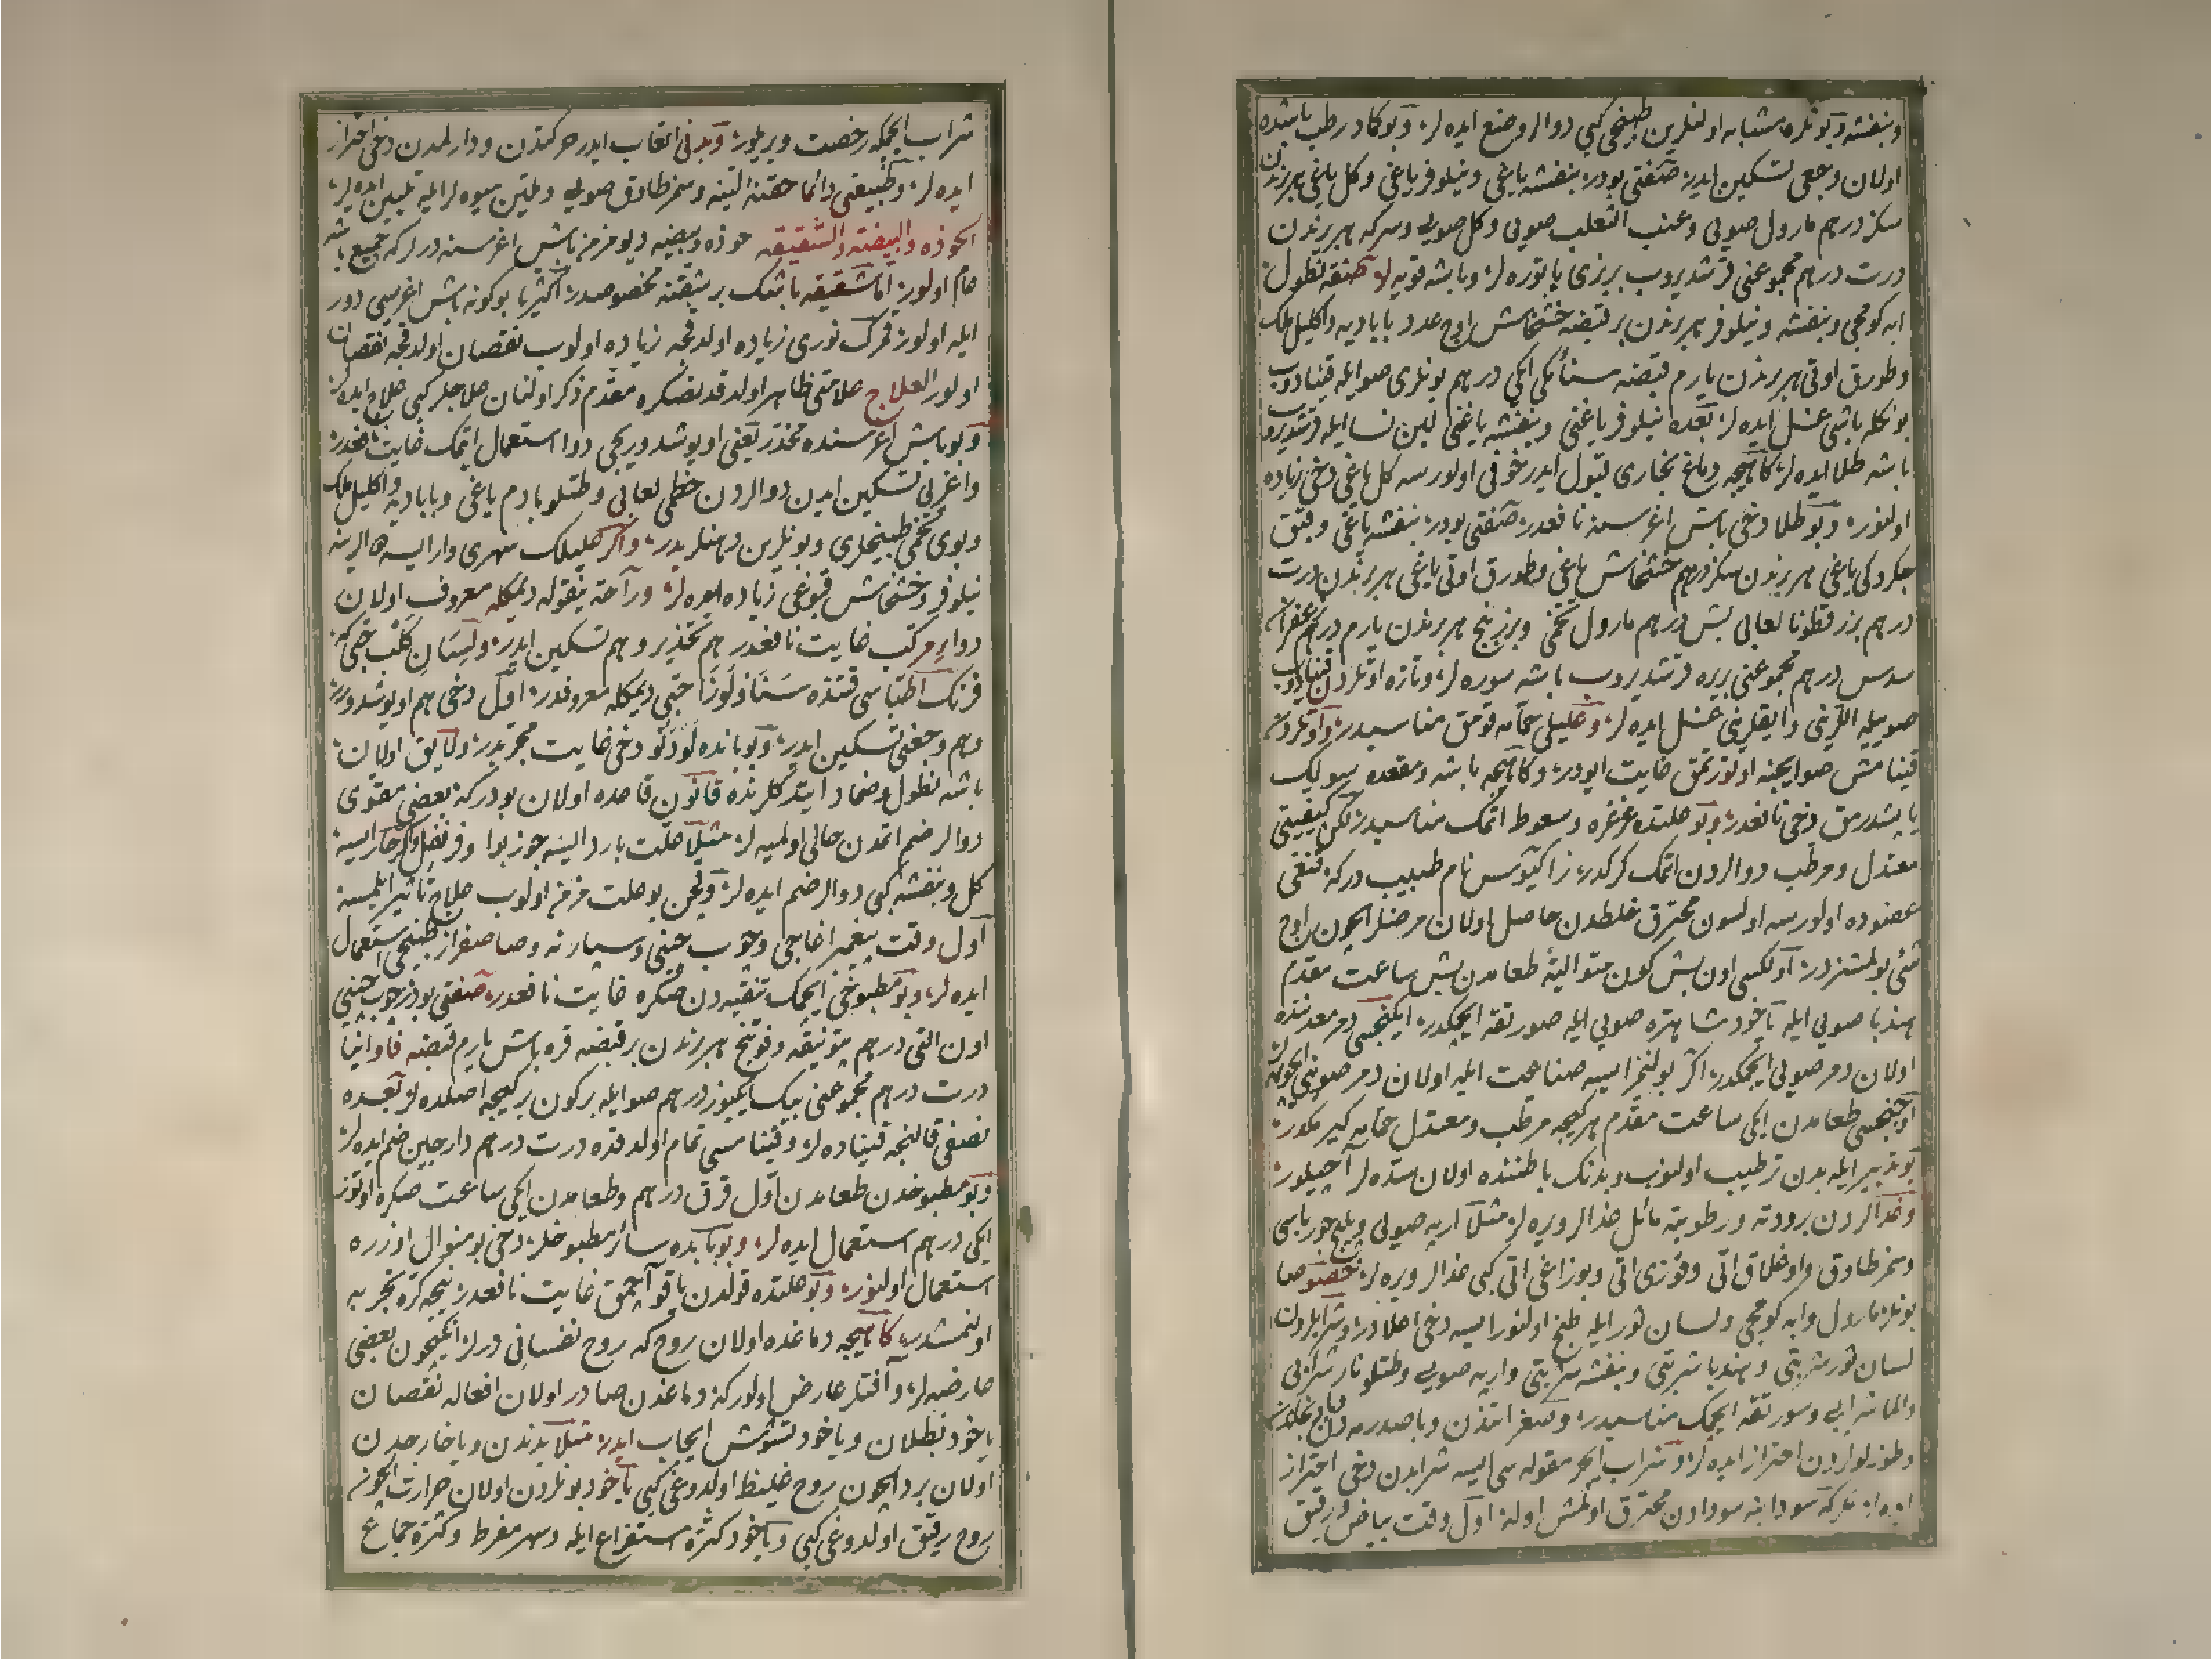 وبنفشه وبونلره مشابه اولنلرين طبيخى كبى دوالر وضع ايده لر وبوكا در طب باشده
اولان وجعى تسكين ايدر صنعتى بودر بنفشه ياغى ونيلوفر ياغى وكل ياغى هر برندن
سكز درهم مارول صويى وعنب الثعلب صويى وكل صويى وسركه هر برندن
درت درهم مجموعنى قرشديروب بر بزى باتوره لر وباشه قويه لر صفته نطول
ابه كومجى وبنفشه ونيلوفر هر برندن بر قبضه خشخاش اوج عدد بابادیه واكليل ملك
وطورق اوتى هر برندن يارم قبضه سنامكى ايكى درهم بونلرى صو ايله قينادوب
بونكله باشى غسل ايده لر بعده نيلوفر ياغنى وبنفشه ياغنى لبن نسا ايله قرشديروب
باشه طلا ايده لر كاهيجه دماغ بخارى قبول ايدر خوفى اولورسه كل ياغى دخى زياده
اولنور وبو طلا دخى باش اغرسنه نافعدر صنعتى بودر بنفشه ياغى وقبق
جكردكى ياغى هر برندن سكز درهم خشخاش ياغى وطورق اوتى ياغى هر برندن درت
درهم بزرقطونا لعابى بش درهم مارول تخمى وبزربنج هر برندن يارم درهم زعفران
سدس درهم مجموعنى بريره قرشديروب باشه سوره لر وتازه اوتلردن قينادوب
صوييله اللرينى واياقلرينى غسل ايده لر وعليلى حمامه قومق مناسبدر واوتلردن
قينامش صو ايچنه اوتورتمق غايت ايودر وكاهيجه باشه ومقعده سولك
ياپشدرمق دخى نافعدر وبو علتده غرغره وسعوط اتمك مناسبدر لكن كيفيتى
معتدل ومرطب دوالردن اتمك كركدر زاكيوس نام طبيب دركه قنقى
عضوده اولورسه اولسون محترق خلطدن حاصل اولان مرضلر ايچون اوج
شى بولمشزدر اولكسى اون بش كون متوالية طعامدن بش ساعت مقدم
هندبا صويى ايله ياخود شاهتره صويى ايله صورتقه ايچيكدر ايكنجيسى دمر معدننده
اولان دمر صويى ايچمكدر اكر بولنمز ايسه صناعت ايله اولان دمر صوينى ايچوره لر
اوچنجيسى طعامدن ايكى ساعت مقدم هر كيجه مرطب ومعتدل حمامه كيرمكدر
بو تدبير ايله بدن ترطيب اولنوب وبدنك باطننده اولان سده لر آچيلور
وغدالردن برودته ورطوبته مائل غدالر ويره لر مثلا اربه صويى وبلج چورباسى
وسمز طاوق واوغلاق اتى وقوزى اتى وبوزاغى اتى كبى غدالر ويره لر خصوصا
بونلر مارول وابه كومجى ولسان ثور ايله طبخ اولنور ايسه دخى اعلادر وشرابلردن
لسان ثور شربتى وهندبا شربتى وبنفشه شربتى واربه صويى وطتلو نار شرابى
والما شرابى وسورتقه ايچمك مناسبدر وصغر اتندن وباصدرمه دن
وطوزلولردن احتراز ايده لر وشراب ايچر مقوله سى ايسه شرابدن دخى احتراز
ايده لر مكر كه سودا ينه سودادن محترق اولمش اوله اول وقت بياض ورقيق
شراب ايچمكه رخصت ويريلور وبدنى اتعاب ايدر حركتدن ودارلمدن دخى احتراز
ايده لر وطبيعتى دائما حقنه لينه وسمز طاوق صويى وملين ميوه لر ايله تليين ايده لر
الخوذه والبيضه والشقيقه خوذه وبيضه ديو مزمن باش اغرسنه ديرلركه جميع باشه
عام اولور اما شقيقه باشك بر شقنه مخصوصدر اكثريا بو كونه باش اغريسى دور
ايله اولور قمرك نورى زياده اولدقجه زياده اولوب نقصان اولدقجه نقصان
اولور العلاج علامتى ظاهر اولدقدنصكره مقدم ذكر اولنان علاجلر كبى علاج ايده لر
وبو باش اغرسنده مخدر يعنى اويوشدوريجى دوا استعمال اتمك غايت نافعدر
واغريى تسكين ايدن دوالردن خطمى لعابى وطتلو بادم ياغى وبابادیه واكليل ملك
وبوى تخمى طبيخلرى وبونلرين دهنلريدر واكر عليلك سهرى وار ايسه هاليرينه
نيلوفر وخشخاش قبوغى زياده ايده لر وراحة نيقوله ديمكله معروف اولان
دواء مركب غايت نافعدر هم تخدير وهم تسكين ايدر ولسان كلب حبى كه
فرنك اطباسى قتنده سنا ذلوزا حبى ديمكله معروفدر اول دخى هم اويوشدورر
وهم وجعى تسكين ايدر وبو بابده لودنو دخى غايت مجربدر ولايق اولان
باشه نطول وضماد ايتدكلرنده قانون قاعده اولان بودركه بعضى مقوى
دوالر ضم اتمدن خالى اولميه لر مثلا علت بارد ايسه جوز بوا وقرنفل واكر حار ايسه
كل وبنفشه كبى دوالر ضم ايده لر ولكن بو علت مزمن اولوب علاج تأثير ايلمسه
اول وقت پيغمبر اغاجى وچوب چينى وسپارنه وصاصفراز طبيخى استعمال
ايده لر وبو مطبوخى ايچمك تنقيه دن صكره غايت نافعدر صنعتى بودر چوب چينى
اون التى درهم بتونيقه وفوتنج هر برندن بر قبضه قره باش يارم قبضه فاوانيا
درت درهم مجموعنى بيك ايكيوز درهم صو ايله بر كون بر كيجه اصلده لر بعده
نصفى قالنجه قيناده لر وقينامسى تمام اولدقده درت درهم دارچين ضم ايده لر
وبو مطبوخدن طعامدن اول قرق درهم وطعامدن ايكى ساعت صكره اوتوز
ايكى درهم استعمال ايده لر وبو بابده سائر مطبوخلر دخى بو منوال اوزره
استعمال اولنور وبو علتده قولدن ياقو آچمق غايت نافعدر نيجه كره تجربه
اولنمشدر كاهيجه دماغده اولان روح كه روح نفسانى درلر انكيچون بعضى
عارضه لر وآفتلر عارض اولوركه دماغدن صادر اولان افعاله نقصان
ياخود بطلان وياخود تشوش ايجاب ايدر مثلا بدندن وياخارجدن
اولان برد ايچون روح غليظ اولدوغى كبى ياخود بونلردن اولان حرارت ايچون
روح رقيق اولدوغى كبى وياخود كثرة استفراغ ايله وسهر مفرط وكثرة جماع